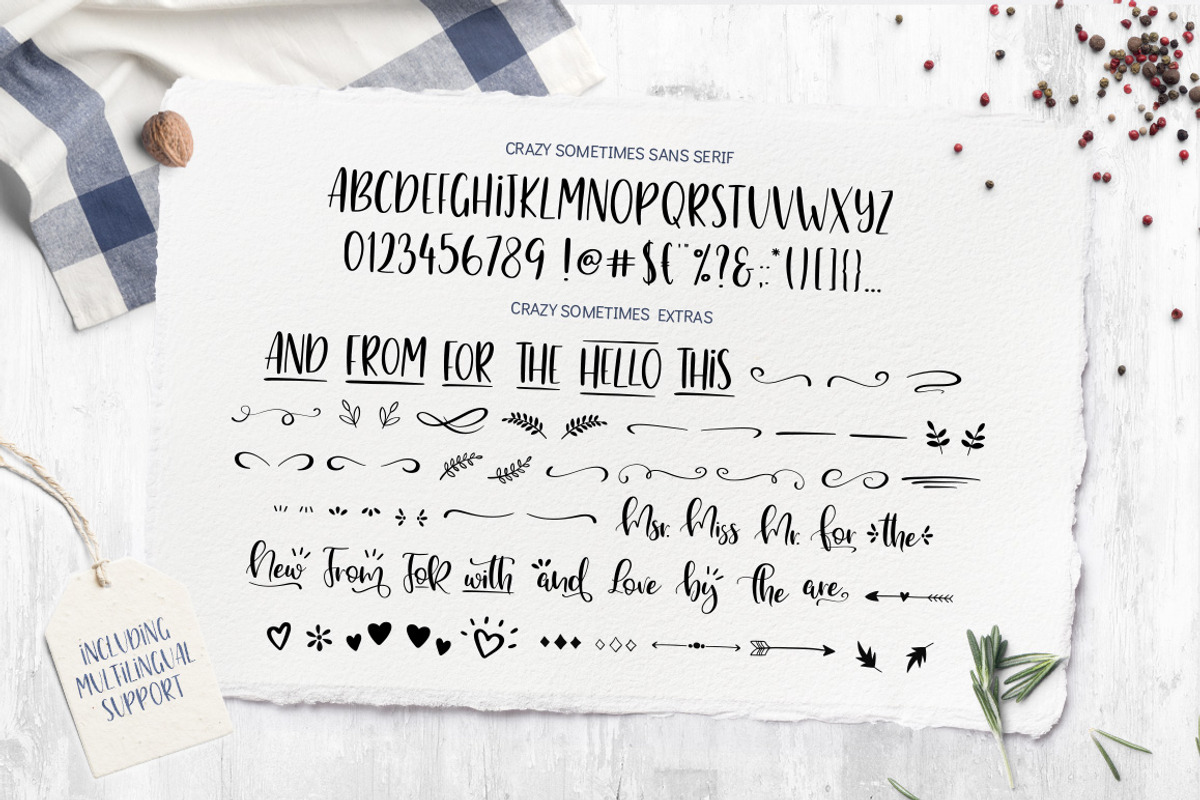 CRAZY SOMETIMES SANS SERIF
ABCDEFGHIJKLMNOPQRSTUVWXYZ
0123456789 !@#$€'"%?&;:*()[]{}...
CRAZY SOMETIMES EXTRAS
AND FROM FOR THE HELLO THIS
Msr. Miss Mr. for the
New From FoR with and Love by The are
INCLUDING
MULTILINGUAL
SUPPORT